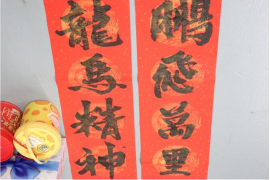 鵬飛萬里
龍馬精神